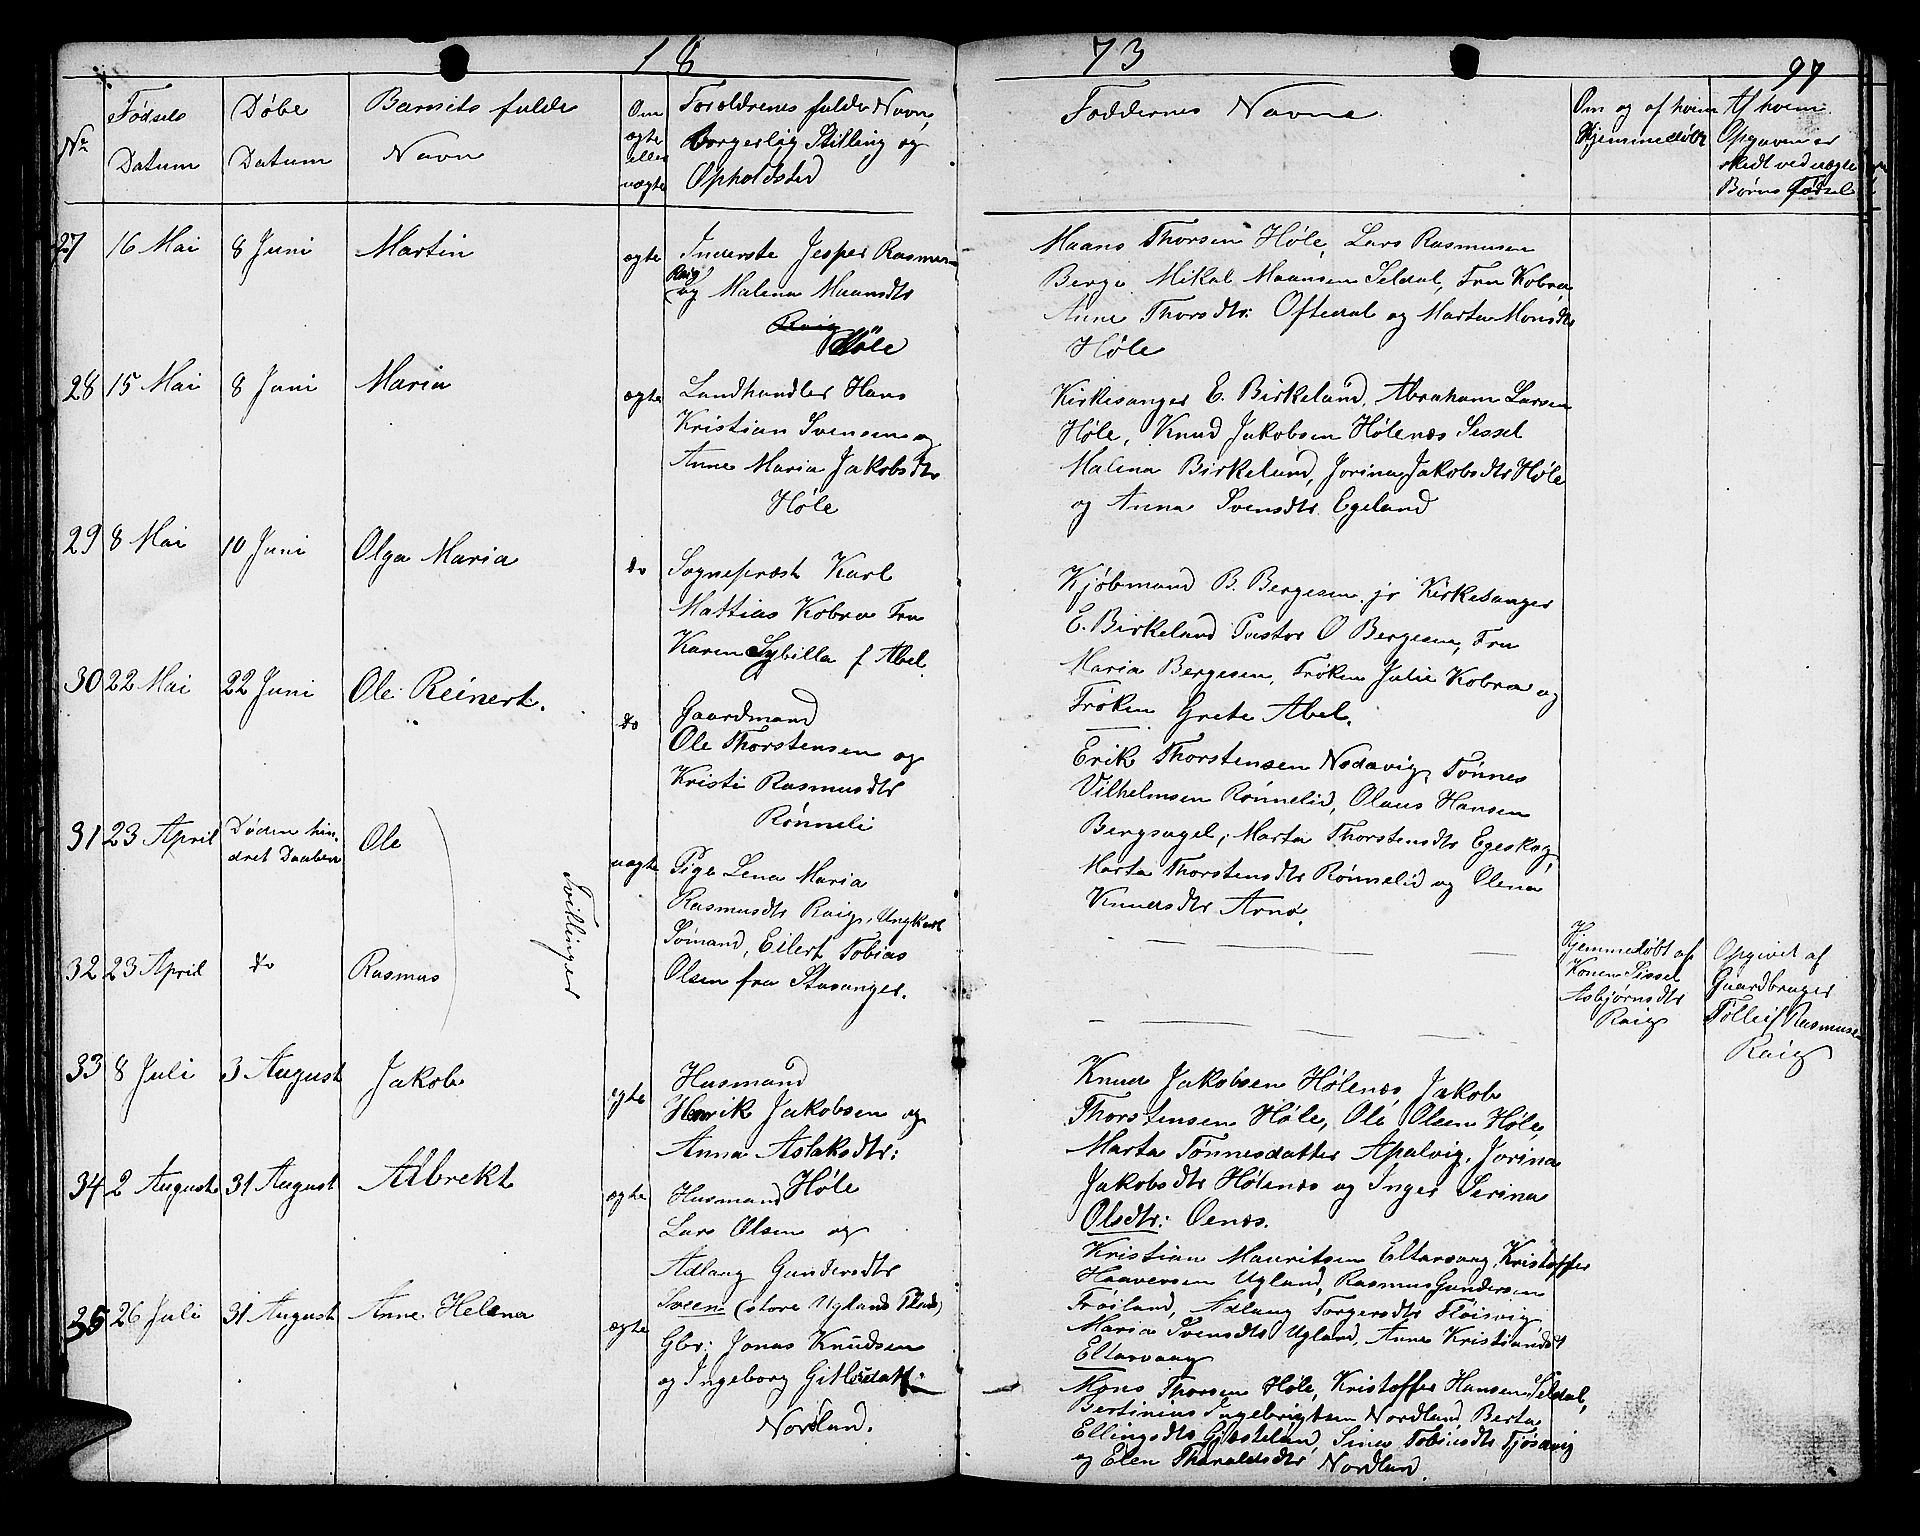 18 73
97
No
Fødsels Datum
Døbe Datum
Barnets fulde Navn
Om ægte eller uægte
Forældrenes fulde Navn, Borgerlig Stilling og Opholdsted
Faddernes Navne.
Om og af hvem Hjemmedøbt
Af hvem Opgaven er skedt ved uægte Børns Fødsel
27 16 Mai 8 Juni Martin ægte
Inderste Jesper Rasmusen
Raig
og Malena Maansdtr
Raig
Høle
Maans Thorsen Høle, Lars Rasmusen
Berge Mikal Maansen Seldal, Fru Kobro
Anne Thorsdtr: Oftedal og Marta Monsdtr
Høle
28 15 Mai 8 Juni Maria ægte
Landhandler Hans
Kristian Svensen og
Anne Maria Jakobsdtr
Høle
Kirkesanger E. Birkeland, Abraham Larsen
Høle, Knud Jakobsen Hølenæs Sissel
Malena Birkeland, Jorina Jakobsdtr Høle
og Anna Svensdtr. Egeland
29 8 Mai 10 Juni Olga Maria do
Sognepræst Karl
Mattias Kobro Fru
Karen Sybilla f Abel.
Kjøbmand B. Bergesen jr Kirkesanger
E. Birkeland Pastor O Bergesen, Fru
Maria Bergesen, Frøken Julie Kobro og
Frøken Grete Abel.
30 22 Mai 22 Juni Ole Reinert. do
Gaardmand
Ole Thorstensen og
Kristi Rasmusdtr
Rønneli
Erik Thorstensen Nodavig, Tønnes
Vilhelmsen Rønnelid, Olaus Hansen
Bergsagel, Marta Thorstensdtr Egeskog,
Marta Thorstensdtr Rønnelid og Olena
Knudsdtr Arnø.
31 23 April Døden hin-
dret Daaben Ole uægte
Tvillinger
Pige Lena Maria
Rasmusdtr Raig, Ungkarl
Sømand, Eilert Tobias
Olsen fra Stavanger.
32 23 April do Rasmus
Hjemmedøbt af
Konen Sissel
Asbjørnsdtr
Raig
Opgivet af
Gaardbruger
Tølleif Rasmusen
Raig
33 8 Juli 3 August Jakob ægte
Husmand
Henrik Jakobsen og
Anna Aslaksdtr:
Høle
Knud Jakobsen Hølenæs, Jakob
Thorstensen Høle, Ole Olsen Høle,
Marta Tønnesdatter Apalvig, Jorina
Jakobsdtr Hølenæs og Inger Serina
Olsdtr: Oenæs.
34 2 August 31 August Albrekt ægte
Husmand
Lars Olsen og
Adlaug Gundersdtr
Sveen (store Ugland Plads)
Kristian Mauritsen Eltarvaag, Kristoffer
Haaversen Ugland, Rasmus Gundersen
Frøiland, Adlaug Torgersdtr Fløisvig,
Maria Svensdtr Ugland, Anne Kristiansdt
Eltarvaag
35 26 Juli 31 August Anne Helena ægte
Gbr: Jonas Knudsen
og Ingeborg Gitlesdatt:
Nordland.
Mons Thorsen Høle, Kristoffer Hansen Seldal,
Bertinius Ingebrigtsen Nordland, Berta
Ellingsdtr Gjesteland, Sina Tobiasdtr Tjøsavig
og Elen Tharaldsdtr Nordland.